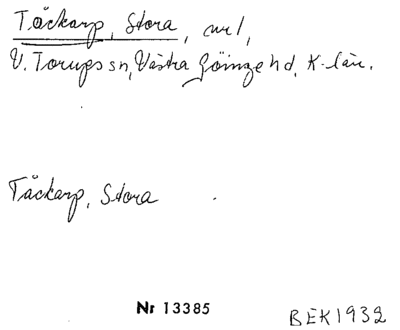 Täckarp, Stora, nr 1,
V. Torups sn, Västra Göinge hd, K-län.
Täckarp, Stora
Nr 13385
BEK 1932